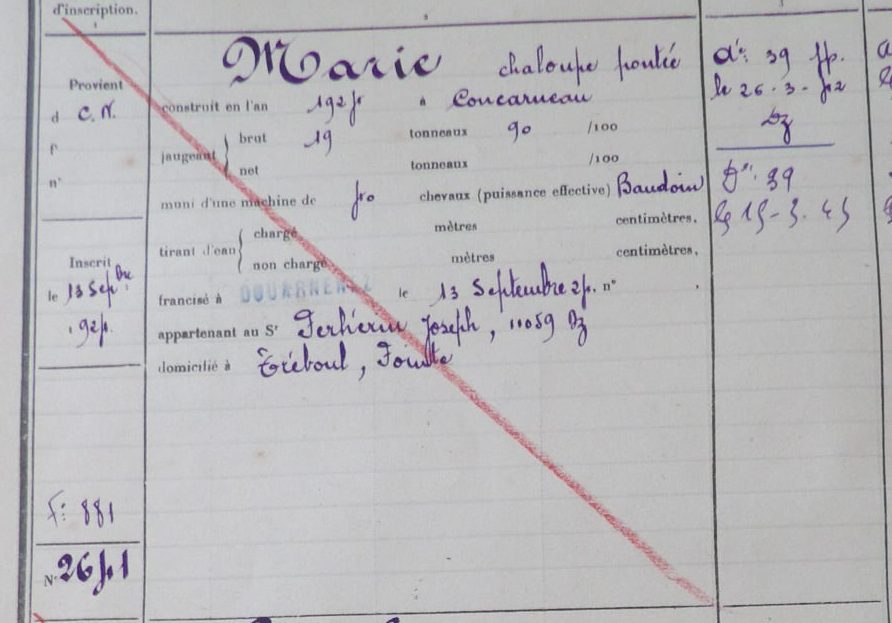 d'inscription.
Provient
d C. N.
f°
n°
Inscrit
le 13 Sepbre
1925.
F: 881
N° 2651
Marie chaloupe pontée
construit en l'an 1925 à Concarneau
jaugeant brut 19 tonneaux 90 /100
net tonneaux /100
muni d'une machine de 50 chevaux (puissance effective) Baudoin
tirant d'eau chargé mètres centimètres.
non chargé mètres centimètres.
francisé à DOUARNENEZ le 13 Septembre 25. n° .
appartenant au Sr Joseph, 11059 Dz
domicilié à Tréboul, Pointe
39
le 26-3-
Dz
39